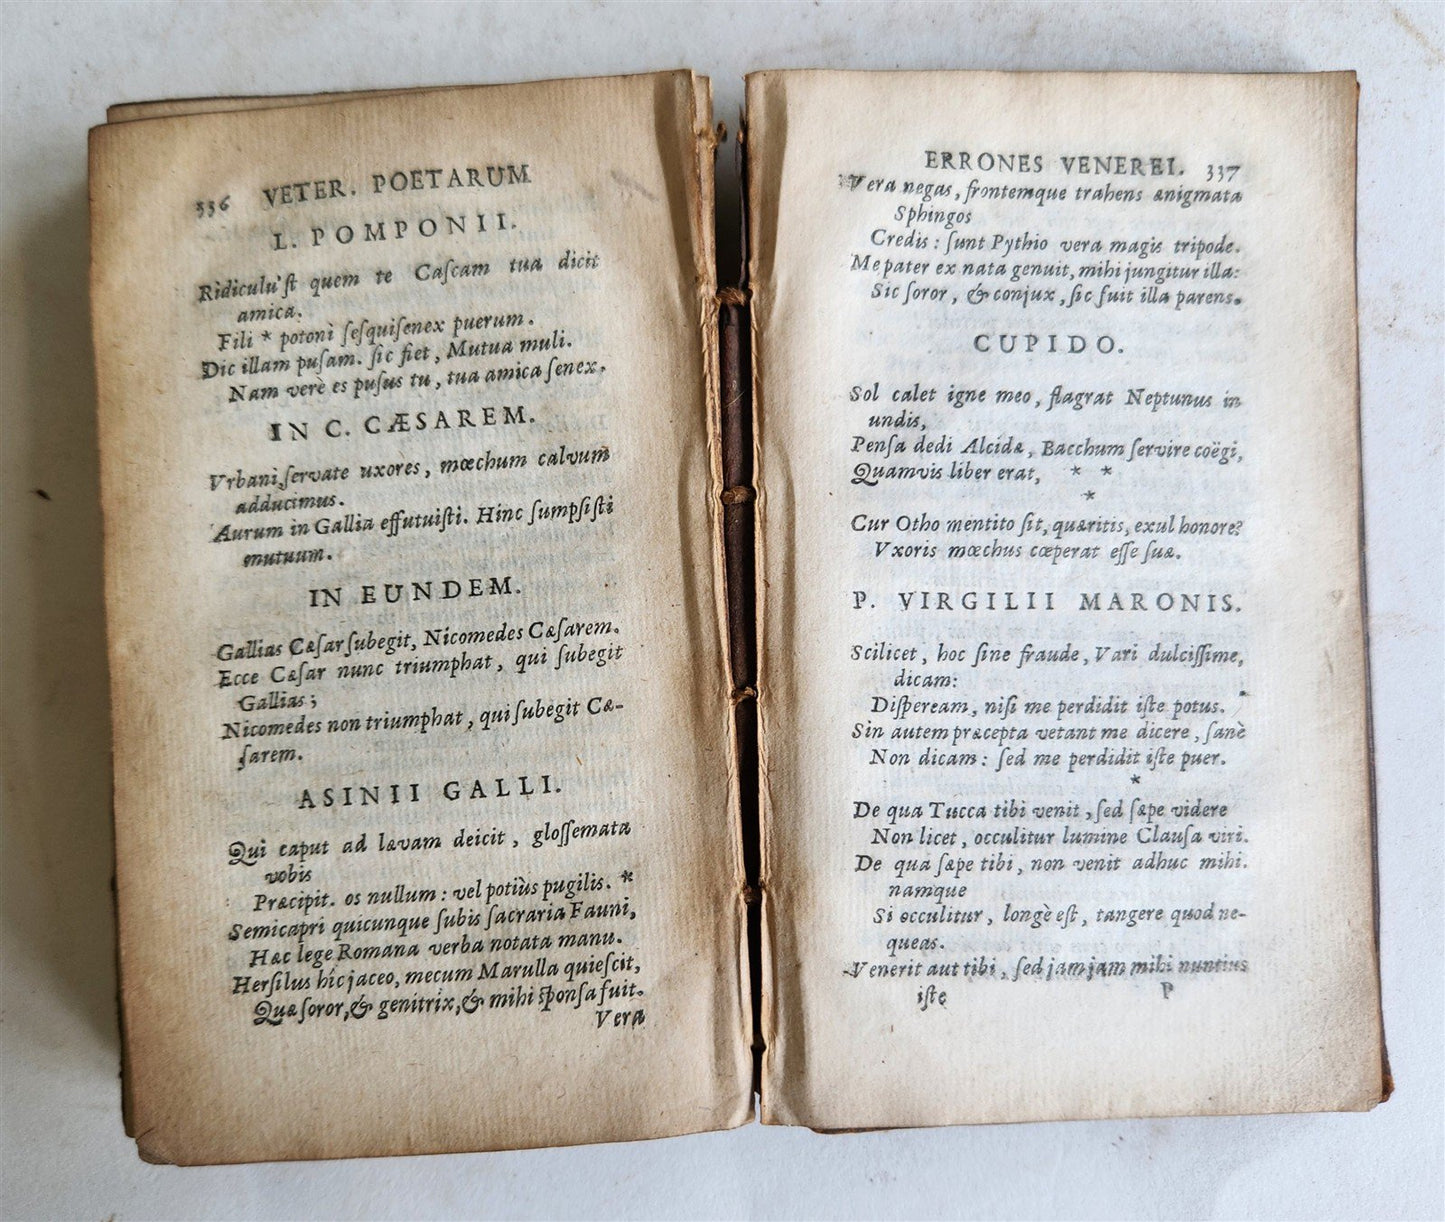 336 VETER. POETARUM
L. POMPONII.
Ridiculu'ſt quem te Caſcam tua dicit
amica.
Fili * potoni ſeſquiſenex puerum.
Dic illam puſam. ſic fiet, Mutua muli.
Nam vere es puſus tu, tua amica ſenex.
IN C. CÆSAREM.
Vrbani, ſervate uxores, mœchum calvum
adducimus.
Aurum in Gallia effutuiſti. Hinc ſumpſiſti
mutuum.
IN EUNDEM.
Gallias Cæſar ſubegit, Nicomedes Cæſarem.
Ecce Cæſar nunc triumphat, qui ſubegit
Gallias;
Nicomedes non triumphat, qui ſubegit Cæ-
ſarem.
ASINII GALLI.
Qui caput ad lævam deicit, gloſſemata
vobis
Præcipit. os nullum: vel potiùs pugilis. *
Semicapri quicunque ſubis ſacraria Fauni,
Hæc lege Romana verba notata manu.
Herſilus hîc jaceo, mecum Marulla quieſcit,
Quæ ſoror, & genitrix, & mihi ſponſa fuit.
Vera
ERRONES VENEREI. 337
Vera negas, frontemque trahens ænigmata
Sphingos
Credis: ſunt Pythio vera magis tripode.
Me pater ex nata genuit, mihi jungitur illa:
Sic ſoror, & conjux, ſic fuit illa parens.
CUPIDO.
Sol calet igne meo, flagrat Neptunus in
undis,
Penſa dedi Alcidæ, Bacchum ſervire coëgi,
Quamvis liber erat, * *
*
Cur Otho mentito ſit, quæritis, exul honore?
Vxoris mœchus cœperat eſſe ſuæ.
P. VIRGILII MARONIS.
Scilicet, hoc ſine fraude, Vari dulciſſime,
dicam:
Diſpeream, niſi me perdidit iſte potus.
Sin autem præcepta vetant me dicere, ſanè
Non dicam: ſed me perdidit iſte puer.
*
De qua Tucca tibi venit, ſed ſæpe videre
Non licet, occulitur lumine Clauſa viri.
De qua ſæpe tibi, non venit adhuc mihi.
namque
Si occulitur, longè eſt, tangere quod ne-
queas.
Venerit aut tibi, ſed jam jam mihi nuntius
iſte P